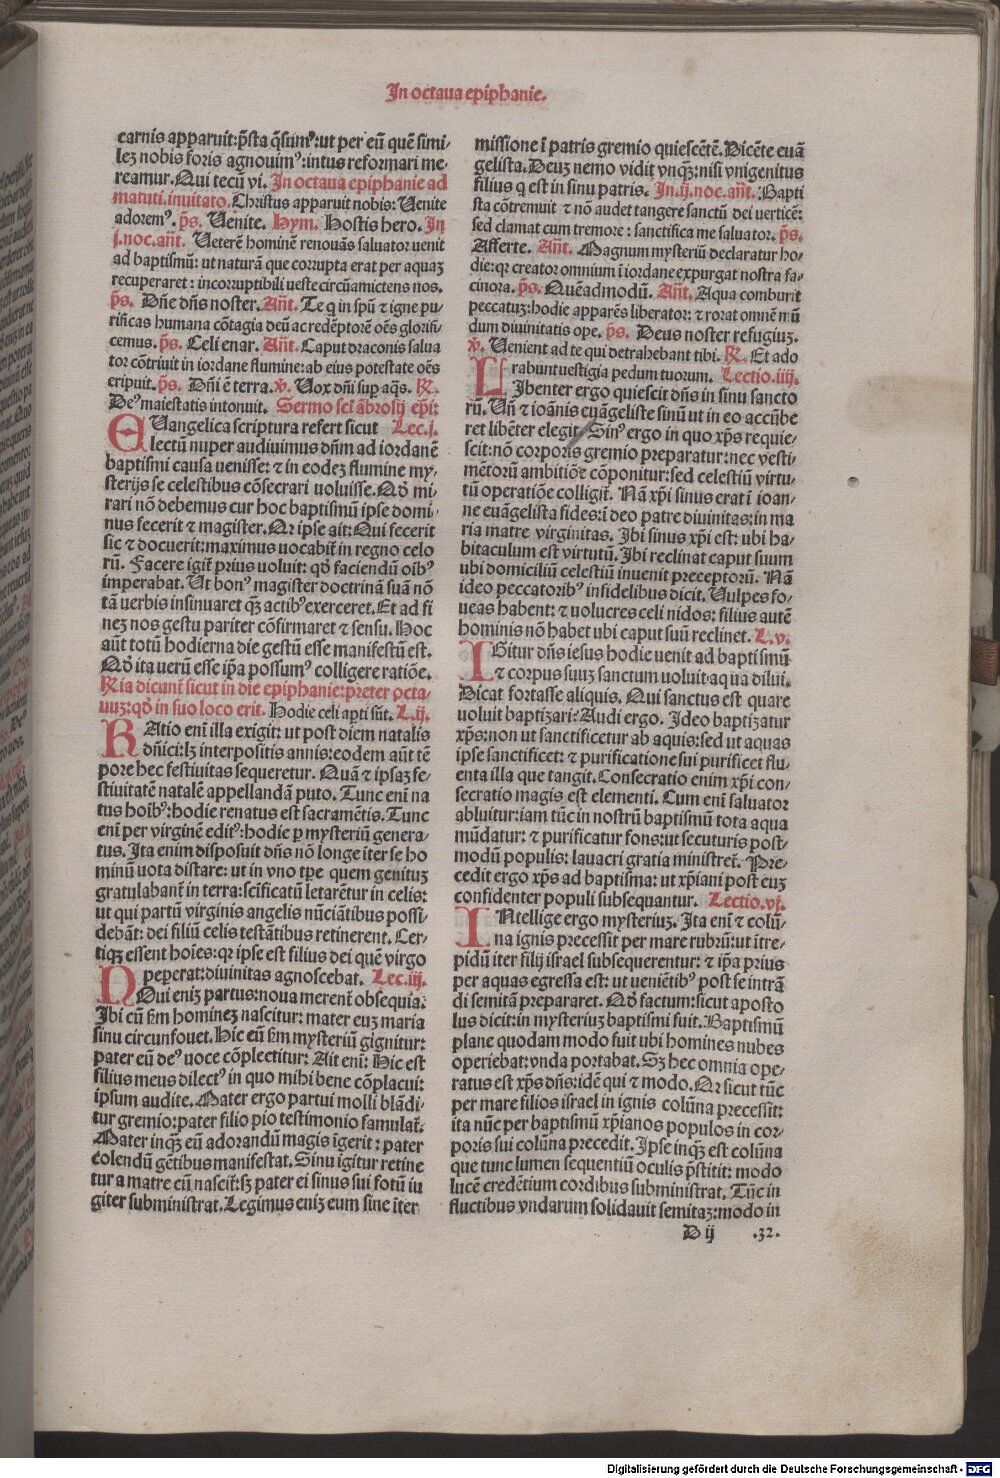 In octaua epiphanie.
carnis apparuit: p̄sta q̄sumꝰ: ut per eū quē simi-
lez nobis foris agnouimꝰ: intus reformari me-
reamur. Qui tecū vi. In octaua epiphanie ad
matuti. inuitato. Christus apparuit nobis: Uenite
adoremꝰ. p̄s. Uenite. Hym. Hostis hero. In
j. noc. añt. Ueterē hominē renouās saluator uenit
ad baptismū: ut naturā que corrupta erat per aquaz
recuperaret: incorruptibili ueste circūamictens nos.
p̄s. Dñe dñs noster. Añt. Te q in sp̄u ⁊ igne pu-
rificas humana cōtagia deū ac redēptorē oēs glorifi-
cemus. p̄s. Celi enar. Añt. Caput draconis salua
tor cōtriuit in iordane flumine: ab eius potestate oēs
eripuit. p̄s. Dñi ē terra. ℣. Uox dñi sup aq̄s. ℟.
Deꝰ maiestatis intonuit. Sermo sc̄i ābrosij ep̄i:
EUangelica scriptura refert sicut Lec. j.
lectū nuper audiuimus dñm ad iordanē
baptismi causa uenisse: ⁊ in eodez flumine my-
sterijs se celestibus cōsecrari uoluisse. Nō mi-
rari nō debemus cur hoc baptismū ipse domi-
nus fecerit ⁊ magister. Ar ipse ait: Qui fecerit
sic ⁊ docuerit: maximus uocabit̄ in regno celo
rū. Facere igit̄ prius uoluit: qd̄ faciendū oībꝰ
imperabat. Ut bonꝰ magister doctrinā suā nō
tā uerbis insinuaret q̄ꝫ actibꝰ exerceret. Et ad fi
nez nos gestu pariter cōfirmaret ⁊ sensu. Hoc
aūt totū hodierna die gestū esse manifestū est.
Nō ita uerū esse ip̄a possumꝰ colligere ratiōe.
℟ia dicant̄ sicut in die epiphanie: preter octa-
uuz: qd̄ in suo loco erit. Hodie celi apti sūt. L. ij.
RAtio enī illa exigit: ut post diem natalis
dñici: lꝫ interpositis annis: eodem aūt tē
pore hec festiuitas sequeretur. Quā ⁊ ipsaz fe-
stiuitatē natalē appellandā puto. Tunc enī na
tus hoībꝰ: hodie renatus est sacramētis. Tunc
enī per virginē editꝰ: hodie p mysteriū genera-
tus. Ita enim disposuit dñs nō longe īter se ho
minū uota distare: ut in vno tp̄e quem genituz
gratulabant̄ in terra: scīficatū letarētur in celis:
ut qui partū virginis angelis nūciātibus possi-
debāt: dei filiū celis testātibus retinerent. Cer-
tiqꝫ essent hoīes: qr ipse est filius dei quē virgo
peperat: diuinitas agnoscebat. Lec. iij.
NOui eniz partus: noua merent̄ obsequia.
Ibi cū fm hominez nascitur: mater euz maria
sinu circunfouet. Hic eū fm mysteriū gignitur:
pater eū deꝰ uoce cōplectitur: Ait enī: Hic est
filius meus dilectꝰ in quo mihi bene cōplacui:
ipsum audite. Mater ergo partui molli blādi-
tur gremio: pater filio pio testimonio famulat̄.
Mater inqꝫ eū adorandū magis īgerit: pater
colendū gētibus manifestat. Sinu igitur retine
tur a matre cū nascit̄: sꝫ pater ei sinus sui fotū iu
giter subministrat. Legimus eniz eum sine īter
missione ī patris gremio quiescētē. Dicēte euā
gelista. Deuz nemo vidit vnqꝫ: nisi vnigenitus
filius q est in sinu patris. In. ij. noc. añt. Bapti
sta cōtremuit ⁊ nō audet tangere sanctū dei verticē:
sed clamat cum tremore: sanctifica me saluator. p̄s.
Afferte. Añt. Magnum mysteriū declaratur ho-
die: qr creator omnium ī iordane expurgat nostra fa-
cinora. p̄s. Quēadmodū. Añt. Aqua comburit
peccatuz: hodie apparēs liberator: ⁊ rorat omnē mū
dum diuinitatis ope. p̄s. Deus noster refugiuz.
℣. Uenient ad te qui detrahebant tibi. ℟. Et ado
rabunt uestigia pedum tuorum. Lectio. iiij.
LIbenter ergo quiescit dñs in sinu sancto
rū. Uñ ⁊ ioānis euāgeliste sinū ut in eo accūbe
ret libēter elegit. Sinꝰ ergo in quo xp̄s requie-
scit: nō corporis gremio preparatur: nec vesti-
mētorū ambitiōe cōponitur: sed celestiū virtu-
tū operatiōe colligit̄. Nā xp̄i sinus erat ī ioan-
ne euāgelista fides: ī deo patre diuinitas: in ma
ria matre virginitas. Ibi sinus xp̄i est: ubi ha-
bitaculum est virtutū. Ibi reclinat caput suum
ubi domiciliū celestiū inuenit preceptorū. Nā
ideo peccatoribꝰ infidelibus dicit. Uulpes fo-
ueas habent: ⁊ uolucres celi nidos: filius autē
hominis nō habet ubi caput suū reclinet. L. v.
IGitur dñs iesus hodie uenit ad baptismū
⁊ corpus suuz sanctum uoluit aqua dilui.
Dicat fortasse aliquis. Qui sanctus est quare
uoluit baptizari? Audi ergo. Ideo baptizatur
xp̄s: non ut sanctificetur ab aquis: sed ut aquas
ipse sanctificet: ⁊ purificatione sui purificet flu-
enta illa que tangit. Consecratio enim xp̄i con-
secratio magis est elementi. Cum enī saluator
abluitur: iam tūc in nostrū baptismū tota aqua
mūdatur: ⁊ purificatur fons: ut secuturis post-
modū populis: lauacri gratia ministret̄. Pre-
cedit ergo xp̄s ad baptisma: ut xp̄iani post euz
confidenter populi subsequantur. Lectio. vj.
INtellige ergo mysteriuz. Ita enī ⁊ colū-
na ignis precessit per mare rubrū: ut ītre-
pidū iter filij israel subsequerentur: ⁊ ip̄a prius
per aquas egressa est: ut ueniētibꝰ post se intrā
di semitā prepararet. Nō factum: sicut aposto
lus dicit: in mysteriuz baptismi fuit. Baptismū
plane quodam modo fuit ubi homines nubes
operiebat: vnda portabat. Sꝫ hec omnia ope-
ratus est xp̄s dñs: idē qui ⁊ modo. Ar sicut tūc
per mare filios israel in ignis colūna precessit:
ita nūc per baptismū xp̄ianos populos in cor-
poris sui colūna precedit. Ipse inqꝫ est colūna
que tunc lumen sequentiū oculis p̄stitit: modo
lucē credētium cordibus subministrat. Tūc in
fluctibus vndarum solidauit semitaz: modo in
D ij .32.
Digitalisierung gefördert durch die Deutsche Forschungsgemeinschaft - DFG